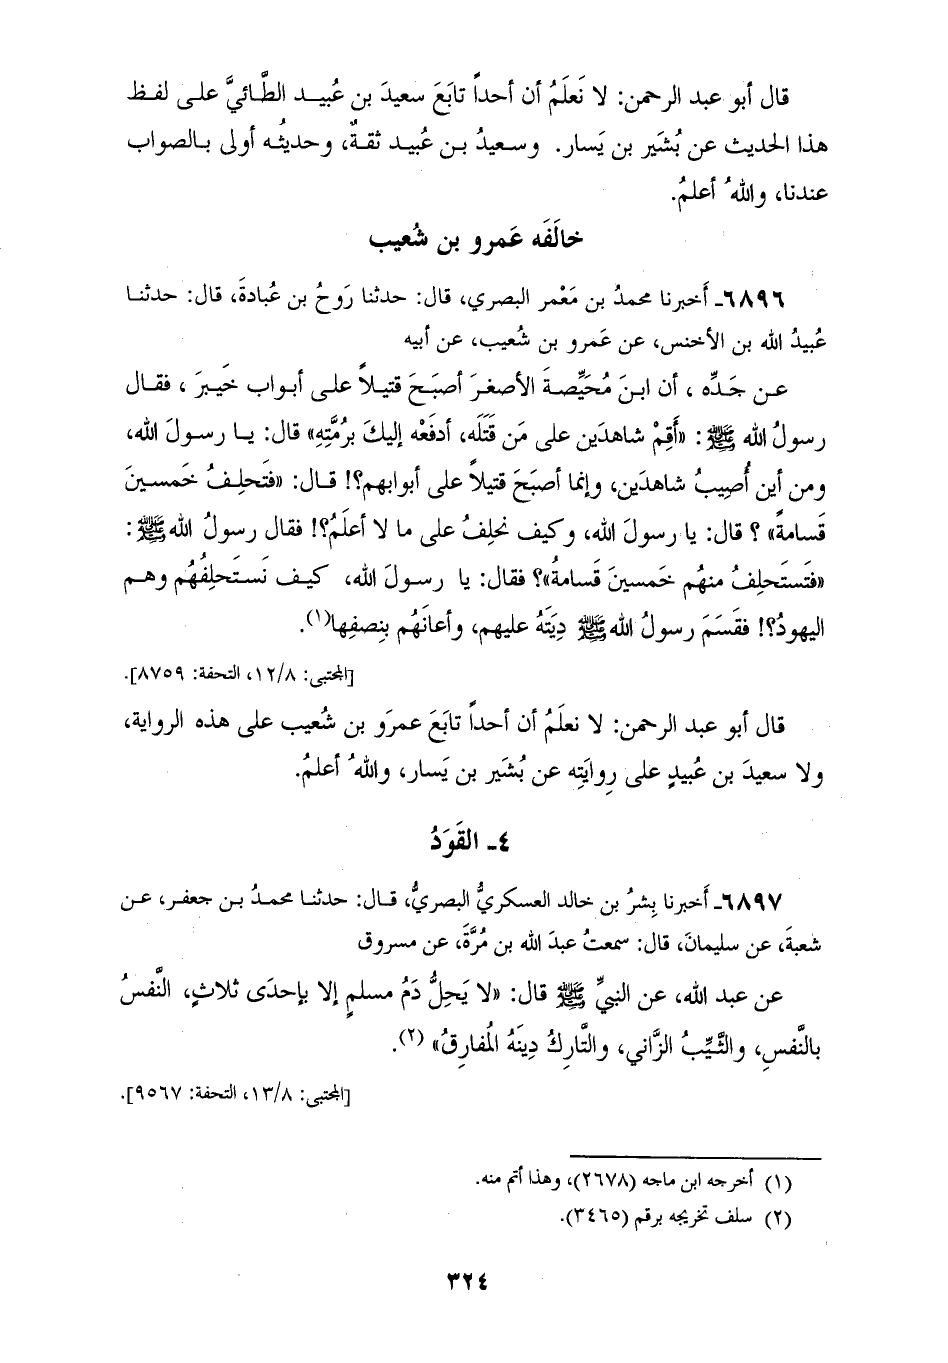 قال أبو عبد الرحمن: لا نَعلَمُ أن أحداً تابَعَ سعيدَ بن عُبيد الطَّائيَّ على لفظ
هذا الحديث عن بُشَير بن يَسار. وسعيدُ بن عُبيد ثقةٌ، وحديثُه أولى بالصواب
عندنا، واللهُ أعلمُ.
خالَفَه عَمرو بن شُعيب
٦٨٩٦ـ أَخبرنا محمدُ بن مَعْمر البصري، قال: حدثنا رَوحُ بن عُبادةَ، قال: حدثنا
عُبيدُ الله بن الأخنس، عن عَمرو بن شُعيب، عن أبيه
عن جَدِّه ، أن ابنَ مُحَيِّصةَ الأصغرَ أصبَحَ قتيلاً على أبواب خَيبرَ ، فقال
رسولُ الله ﷺ: «أَقِمْ شاهدَين على مَن قَتَلَه، أدفَعْه إليكَ برُمَّتِهِ» قال: يا رسولَ الله،
ومن أين أُصِيبُ شاهدَين، وإنما أصبَحَ قتيلاً على أبوابهم؟! قال: «فَتَحلِفُ خَمسينَ
قَسامةً» ؟ قال: يا رسولَ الله، وكيف نحلِفُ على ما لا أعلَمُ؟! فقال رسولُ الله ﷺ:
«فَتَستَحلِفُ منهُم خَمسينَ قَسامةُ»؟ فقال: يا رسولَ الله، كيف نَستَحلِفُهُم وهم
اليهودُ؟! فقَسَمَ رسولُ الله ﷺ دِيَتَهُ عليهم، وأعانَهُم بِنصفِها(١).
[المجتبى: ١٢/٨، التحفة: ٨٧٥٩].
قال أبو عبد الرحمن: لا نعلَمُ أن أحداً تابَعَ عمرَو بن شُعيب على هذه الرواية،
ولا سعيدَ بن عُبيدٍ على رِوايَتِه عن بُشَير بن يَسار، واللهُ أعلمُ.
٤ـ القَوَدُ
٦٨٩٧ـ أَخبرنا بِشرُ بن خالد العسكريُّ البصريُّ، قال: حدثنا محمدُ بن جعفر، عن
شعبةَ، عن سليمانَ، قال: سمعتُ عبدَ الله بن مُرَّةَ، عن مسروق
عن عبد الله، عن النبيِّ ﷺ قال: «لا يَحِلُّ دَمُ مسلمٍ إلا بإحدَى ثلاثٍ، النَّفسُ
بالنَّفسِ، والثَّيِّبُ الزَّاني، والتَّاركُ دِينَهُ المُفارِقُ» (٢).
[المجتبى: ١٣/٨، التحفة: ٩٥٦٧].
(١) أخرجه ابن ماجه (٢٦٧٨)، وهذا أتم منه.
(٢) سلف تخريجه برقم (٣٤٦٥).
٣٢٤